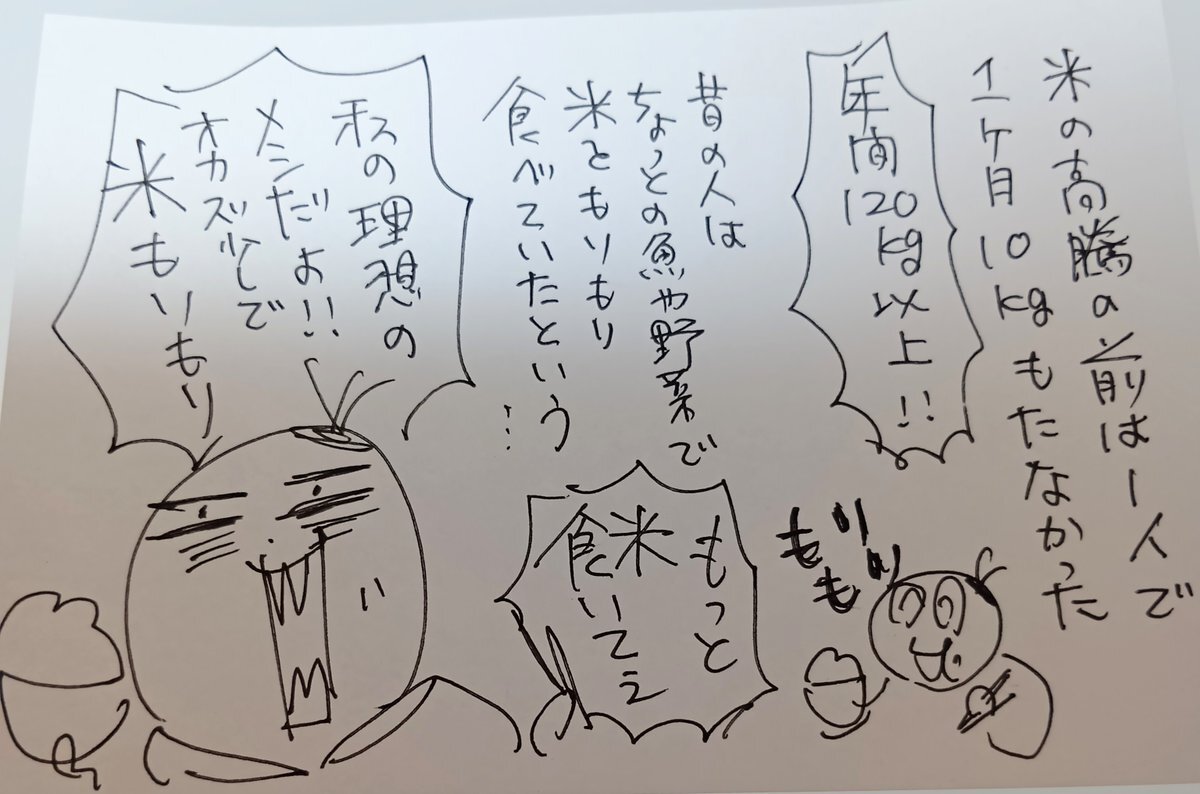 米の高騰の前は一人で
1ヶ月10kgもたなかった
年間
120
kg
以上!!
もりもり
昔の人は
ちょっとの魚や野菜で
米ともりもり
食べていたという…
もっと
米
食いてえ
私の理想の
メシだよ!!
オカズ少しで
米もりもり